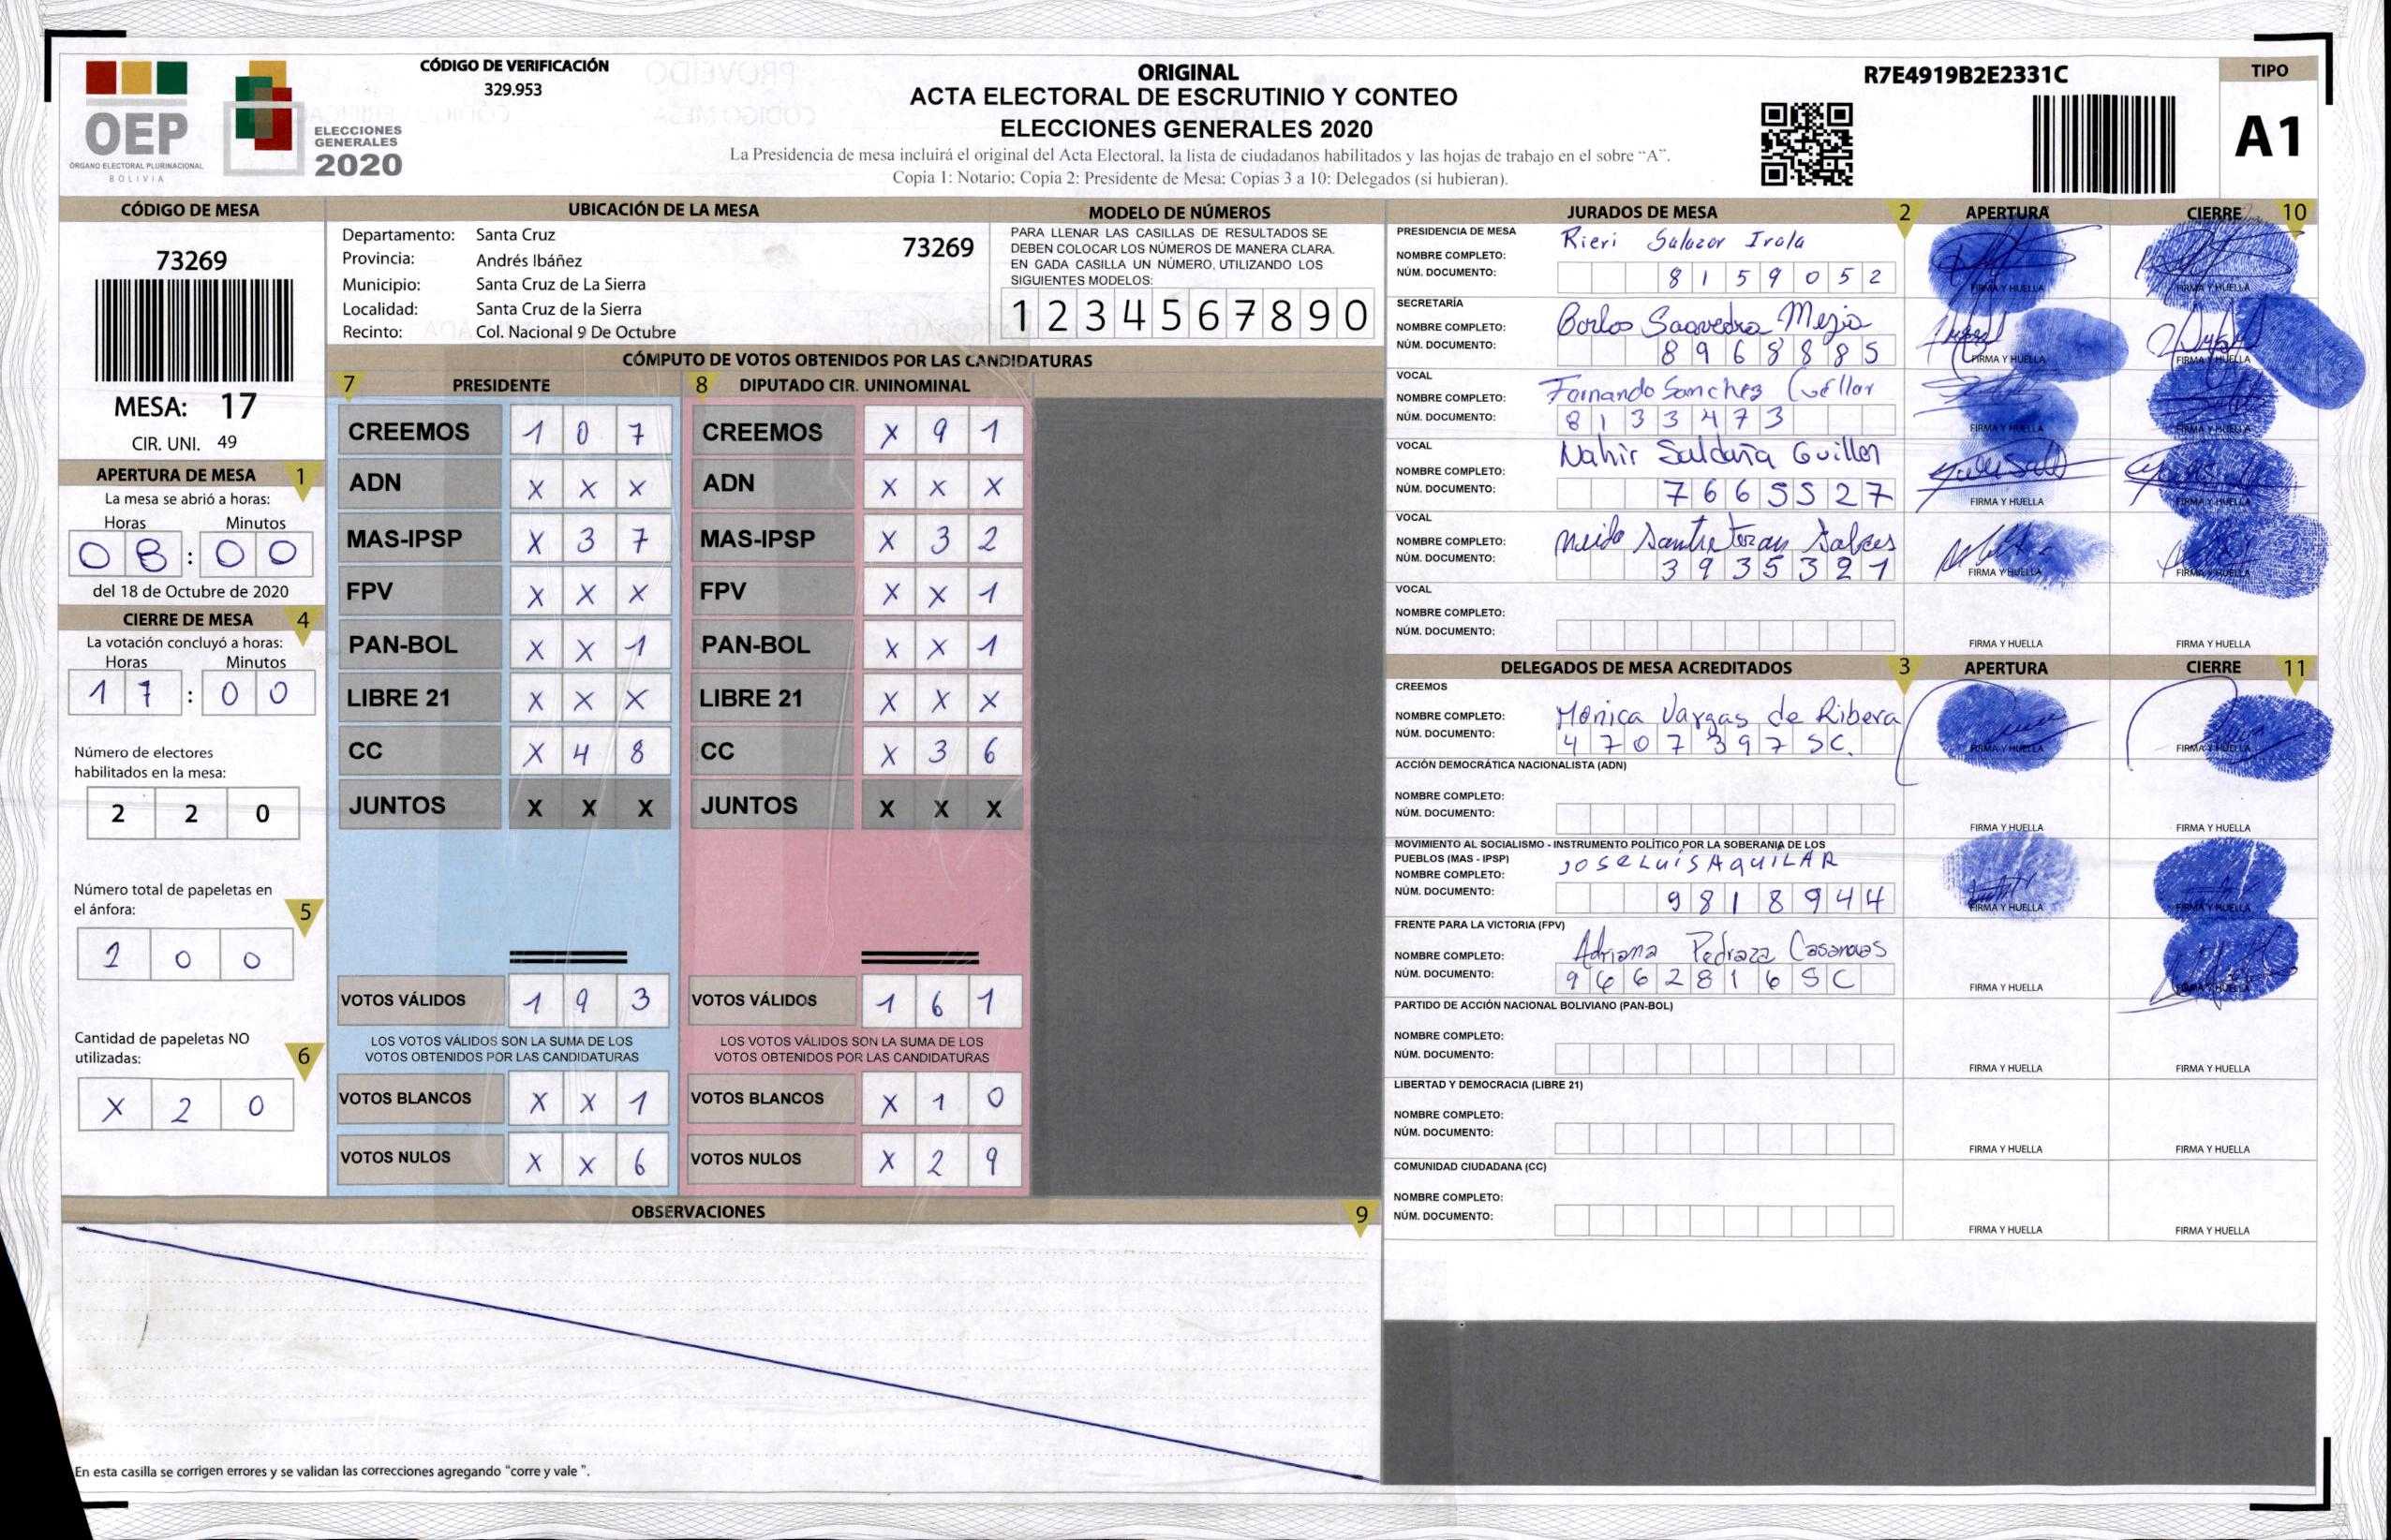 CÓDIGO DE VERIFICACIÓN
329.953
OEP
ÓRGANO ELECTORAL PLURINACIONAL
BOLIVIA
ELECCIONES
GENERALES
2020
ORIGINAL
ACTA ELECTORAL DE ESCRUTINIO Y CONTEO
ELECCIONES GENERALES 2020
La Presidencia de mesa incluirá el original del Acta Electoral, la lista de ciudadanos habilitados y las hojas de trabajo en el sobre "A".
Copia 1: Notario; Copia 2: Presidente de Mesa; Copias 3 a 10: Delegados (si hubieran).
R7E4919B2E2331C
TIPO
A1
CÓDIGO DE MESA
73269
MESA: 17
CIR. UNI. 49
APERTURA DE MESA 1
La mesa se abrió a horas:
Horas Minutos
08:00
del 18 de Octubre de 2020
CIERRE DE MESA 4
La votación concluyó a horas:
Horas Minutos
17:00
Número de electores
habilitados en la mesa:
2 2 0
Número total de papeletas en
el ánfora: 5
2 0 0
Cantidad de papeletas NO
utilizadas: 6
X 2 0
UBICACIÓN DE LA MESA
Departamento: Santa Cruz
73269
Provincia: Andrés Ibáñez
Municipio: Santa Cruz de La Sierra
Localidad: Santa Cruz de la Sierra
Recinto: Col. Nacional 9 De Octubre
MODELO DE NÚMEROS
PARA LLENAR LAS CASILLAS DE RESULTADOS SE
DEBEN COLOCAR LOS NÚMEROS DE MANERA CLARA.
EN CADA CASILLA UN NÚMERO, UTILIZANDO LOS
SIGUIENTES MODELOS:
1 2 3 4 5 6 7 8 9 0
CÓMPUTO DE VOTOS OBTENIDOS POR LAS CANDIDATURAS
7 PRESIDENTE 8 DIPUTADO CIR. UNINOMINAL
CREEMOS 1 0 7 CREEMOS X 9 1
ADN X X X ADN X X X
MAS-IPSP X 3 7 MAS-IPSP X 3 2
FPV X X X FPV X X 1
PAN-BOL X X 1 PAN-BOL X X 1
LIBRE 21 X X X LIBRE 21 X X X
CC X 4 8 CC X 3 6
JUNTOS X X X JUNTOS X X X
VOTOS VÁLIDOS 1 9 3 VOTOS VÁLIDOS 1 6 1
LOS VOTOS VÁLIDOS SON LA SUMA DE LOS LOS VOTOS VÁLIDOS SON LA SUMA DE LOS
VOTOS OBTENIDOS POR LAS CANDIDATURAS VOTOS OBTENIDOS POR LAS CANDIDATURAS
VOTOS BLANCOS X X 1 VOTOS BLANCOS X 1 0
VOTOS NULOS X X 6 VOTOS NULOS X 2 9
OBSERVACIONES 9
En esta casilla se corrigen errores y se validan las correcciones agregando "corre y vale ".
JURADOS DE MESA 2 APERTURA CIERRE 10
PRESIDENCIA DE MESA
NOMBRE COMPLETO: Rieri Salazar Irala
NÚM. DOCUMENTO: 8159052
FIRMA Y HUELLA FIRMA Y HUELLA
SECRETARÍA
NOMBRE COMPLETO: Saavedra Mejia
NÚM. DOCUMENTO: 8968885
FIRMA Y HUELLA FIRMA Y HUELLA
VOCAL
NOMBRE COMPLETO: Fernando Sanchez Cuellar
NÚM. DOCUMENTO: 8133473
FIRMA Y HUELLA FIRMA Y HUELLA
VOCAL
NOMBRE COMPLETO: Nahir Saldaña Guillen
NÚM. DOCUMENTO: 7665527
FIRMA Y HUELLA FIRMA Y HUELLA
VOCAL
NOMBRE COMPLETO:
NÚM. DOCUMENTO: 3935321
FIRMA Y HUELLA FIRMA Y HUELLA
VOCAL
NOMBRE COMPLETO:
NÚM. DOCUMENTO:
FIRMA Y HUELLA FIRMA Y HUELLA
DELEGADOS DE MESA ACREDITADOS 3 APERTURA CIERRE 11
CREEMOS
NOMBRE COMPLETO: Monica Vargas de Ribera
NÚM. DOCUMENTO: 4707397SC.
FIRMA Y HUELLA FIRMA Y HUELLA
ACCIÓN DEMOCRÁTICA NACIONALISTA (ADN)
NOMBRE COMPLETO:
NÚM. DOCUMENTO:
FIRMA Y HUELLA FIRMA Y HUELLA
MOVIMIENTO AL SOCIALISMO - INSTRUMENTO POLÍTICO POR LA SOBERANÍA DE LOS
PUEBLOS (MAS - IPSP)
NOMBRE COMPLETO: JOSE LUIS AGUILAR
NÚM. DOCUMENTO: 9818944
FIRMA Y HUELLA FIRMA Y HUELLA
FRENTE PARA LA VICTORIA (FPV)
NOMBRE COMPLETO: Adriana Pedraza Casanovas
NÚM. DOCUMENTO: 9662816SC
FIRMA Y HUELLA
PARTIDO DE ACCIÓN NACIONAL BOLIVIANO (PAN-BOL)
NOMBRE COMPLETO:
NÚM. DOCUMENTO:
FIRMA Y HUELLA FIRMA Y HUELLA
LIBERTAD Y DEMOCRACIA (LIBRE 21)
NOMBRE COMPLETO:
NÚM. DOCUMENTO:
FIRMA Y HUELLA FIRMA Y HUELLA
COMUNIDAD CIUDADANA (CC)
NOMBRE COMPLETO:
NÚM. DOCUMENTO:
FIRMA Y HUELLA FIRMA Y HUELLA